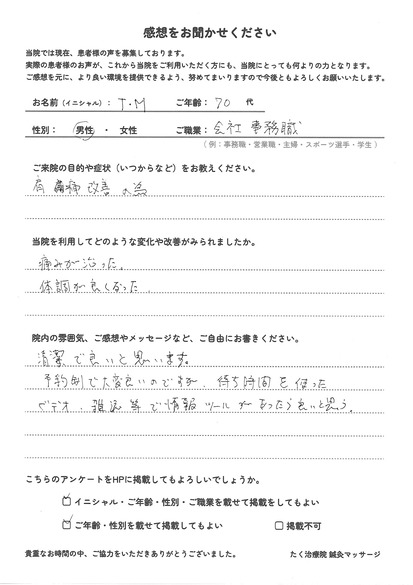 感想をお聞かせください
当院では現在、患者様の声を募集しております。
実際の患者様のお声が、これから当院をご利用いただく方にも、当院にとっても何よりの力となります。
ご感想を元に、より良い環境を提供できるよう、努めてまいりますので今後ともよろしくお願いいたします。
お名前(イニシャル): T・M ご年齢: 70 代
性別: 男性 ・ 女性 ご職業: 会社 事務職
(例:事務職・営業職・主婦・スポーツ選手・学生)
ご来院の目的や症状(いつからなど)をお教えください。
肩 痛 改善 の為
当院を利用してどのような変化や改善がみられましたか。
痛みが治った。
体調が良くなった。
院内の雰囲気、ご感想やメッセージなど、ご自由にお書きください。
清潔で良いと思います。
予約制で大変良いのですが、待ち時間を使った
ビデオ、雑誌等で情報ツールがあったら良いと思う。
こちらのアンケートをHPに掲載してもよろしいでしょうか。
イニシャル・ご年齢・性別・ご職業を載せて掲載をしてもよい
ご年齢・性別を載せて掲載してもよい 掲載不可
貴重なお時間の中、ご協力をいただきありがとうございました。 たく治療院 鍼灸マッサージ